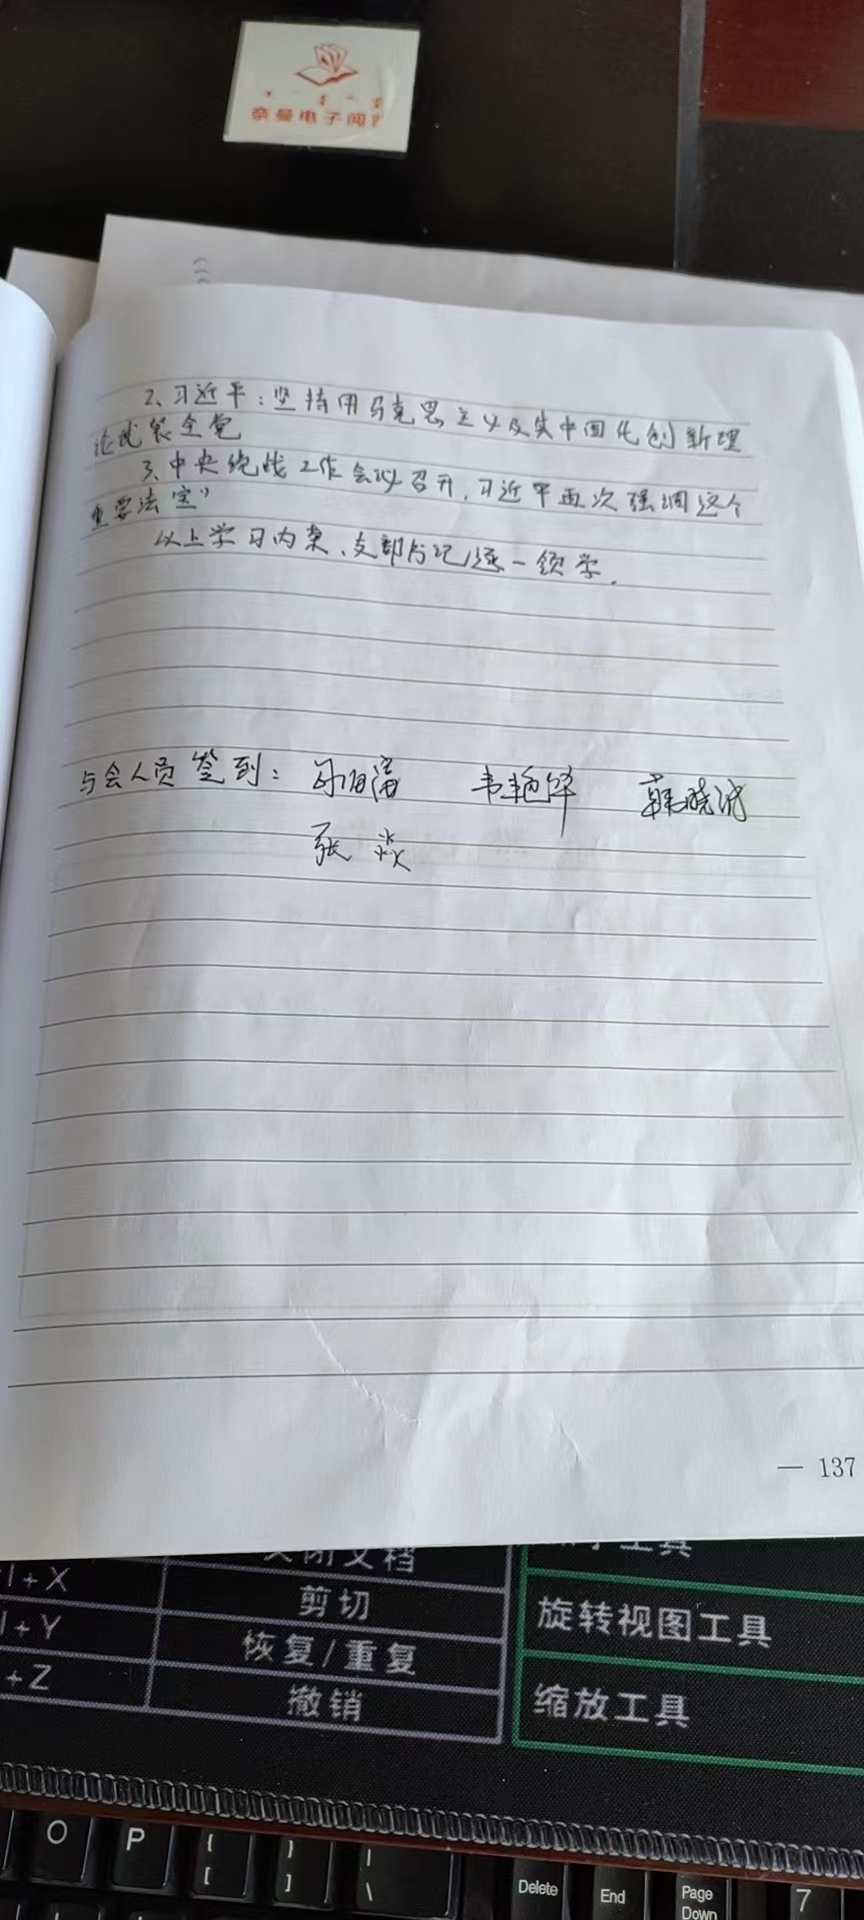 奈曼电子阅
2、习近平：坚持用马克思主义及其中国化创新理
论武装全党
3、中央统战工作会议召开，习近平再次强调这个
重要法宝”
以上学习内容、支部书记逐一领学.
与会人员签到： 韦艳华
张焱
— 137
+X 剪切
+Y 恢复/重复 旋转视图工具
+Z 撤销 缩放工具
O P { [ } ] | \ Delete End Page Down 7